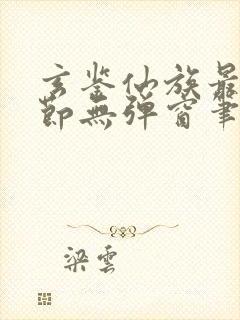 玄鉴仙族最
節無彈窗筆
梁雲